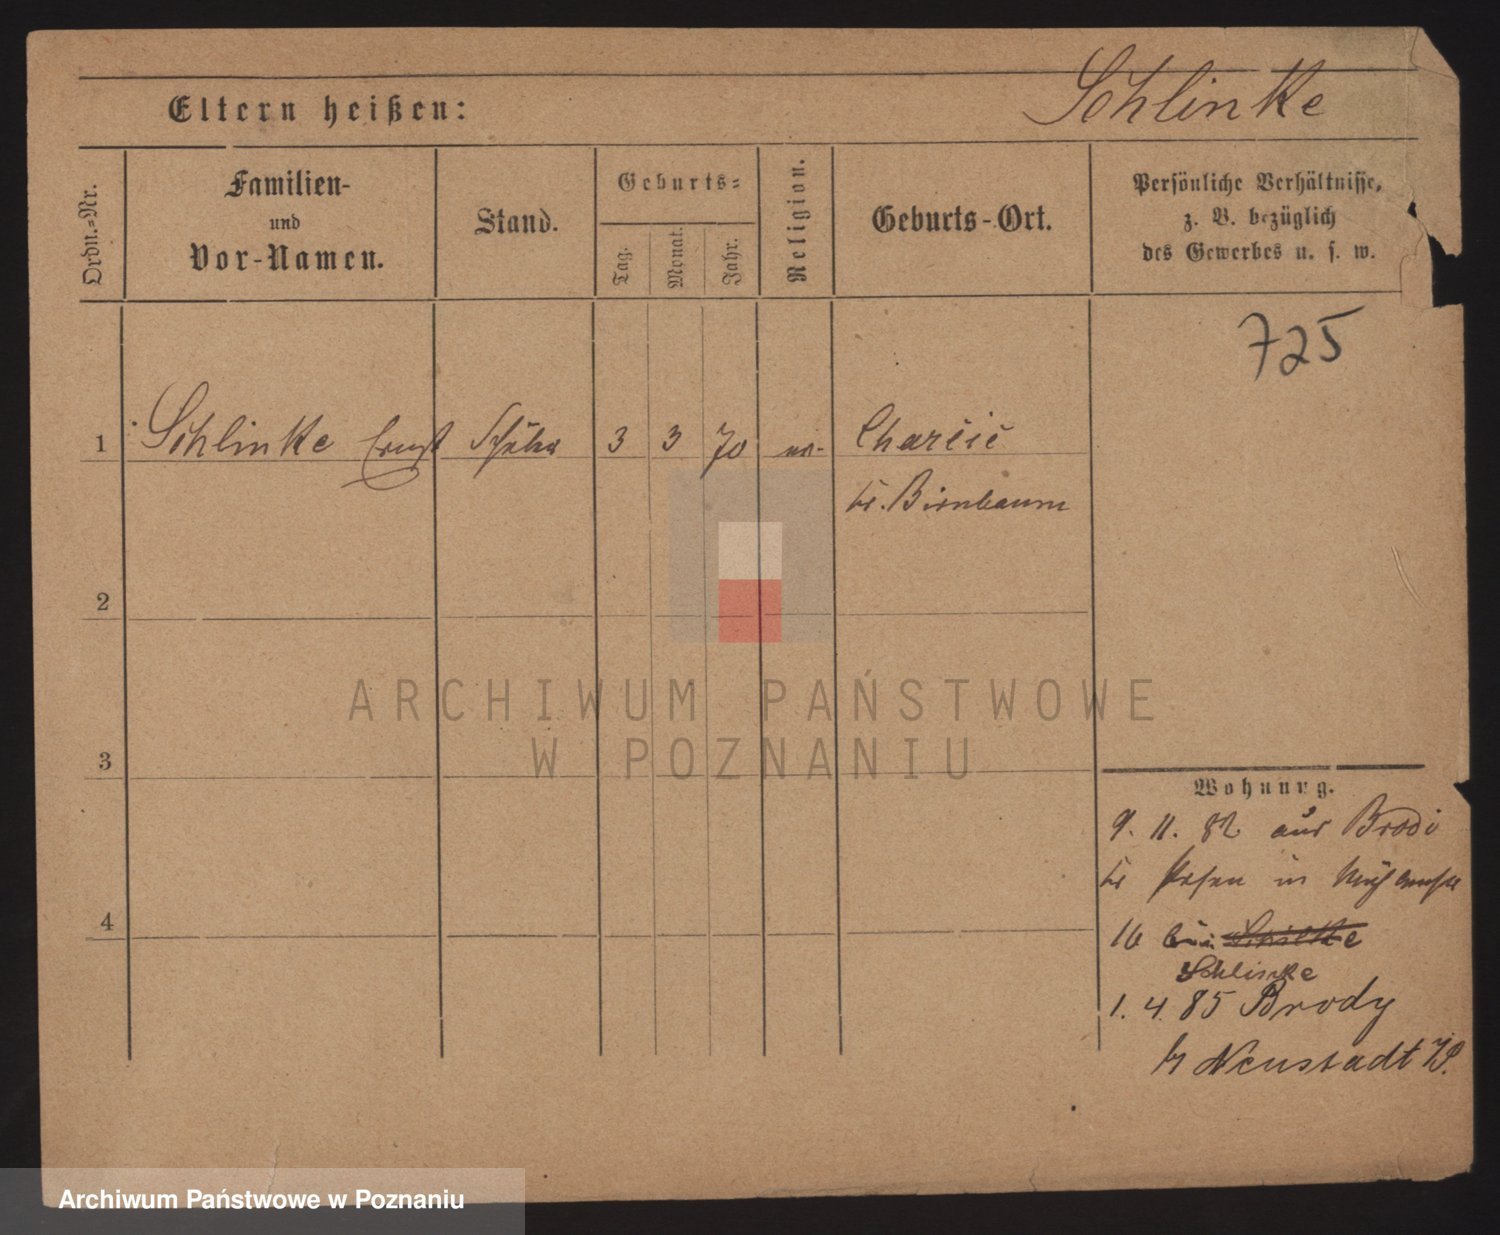 Schlinke
Eltern heißen:
Ordn.-Nr.
Familien-
und
Vor-Namen.
Stand.
Geburts-
Tag.
Monat.
Jahr.
Religion.
Geburts-Ort.
Persönliche Verhältnisse,
z. B. bezüglich
des Gewerbes u. s. w.
725
1 Schlinke Ernst Schüler 3 3 70 ev. Charcic
Kr. Birnbaum
2
3
4
Wohnung.
9. 11. 82 aus Brodi
Kr Posen in
16 bei Schlinke
1. 4. 85 Brody
b Neustadt
ARCHIWUM PAŃSTWOWE
W POZNANIU
Archiwum Państwowe w Poznaniu